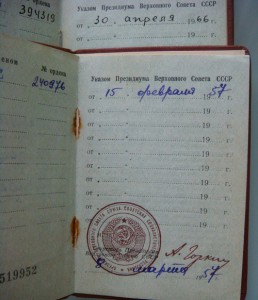 № ордена
394319
Указом Президиума Верховного Совета СССР
от 30 апреля 1966 г.
от 19 г.
№ ордена
240876
Указом Президиума Верховного Совета СССР
от 15 февраля 1957 г.
от 19 г.
от 19 г.
от 19 г.
от 19 г.
от 19 г.
от 19 г.
от 19
А. Горкин
8 марта 1957 г.
519952